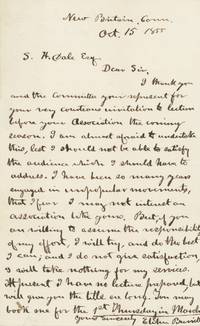 New Britain, Conn.
Oct. 15 1855
S. H. Dale Esq.
Dear Sir,
I thank you
and the Committee you represent for
your very courteous invitation to lecture
before your Association the coming
season. I am almost afraid to undertake
this, lest I should not be able to satisfy
the audience which I should have to
address. I have been so many years
engaged in unpopular movements,
that I fear I may not interest an
association like yours. But, if you
are willing to assume the responsibility
of my effort, I will try, and do the best
I can; and if I do not give satisfaction,
I will take nothing for my services.
At present I have no lecture prepared, but
will give you the title ere long. You may
book me for the 1st Thursday in March
Yours Sincerely Elihu Burritt